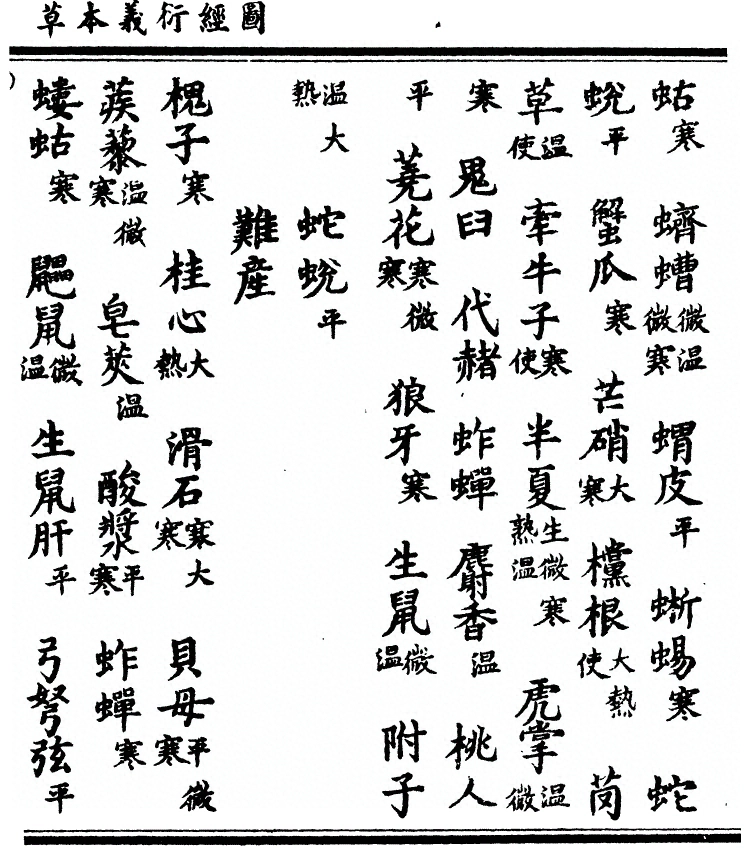 圖經衍義本草
蛄寒 蠐螬微溫微寒 蝟皮平 蜥蜴寒 蛇
蛻平 蟹瓜寒 芒硝大寒 欓根大熱使
草溫使 牽牛子寒使 半夏生微寒熟溫 虎掌溫微
寒 鬼臼 代赭 蚱蟬 麝香溫 桃人
平 蕘花寒微寒 狼牙寒 生鼠微溫 附子
溫大熱 蛇蛻平
難產
槐子寒 桂心大熱 滑石寒大寒 貝母平微寒
蒺藜溫微寒 皂莢溫 酸漿平寒 蚱蟬寒
螻蛄寒 鼺鼠微溫 生鼠肝平 弓弩弦平